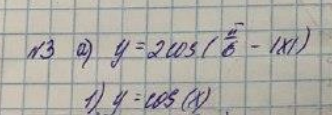 №3 а) y = 2cos(π/6 - |x|)
1) y = cos(x)